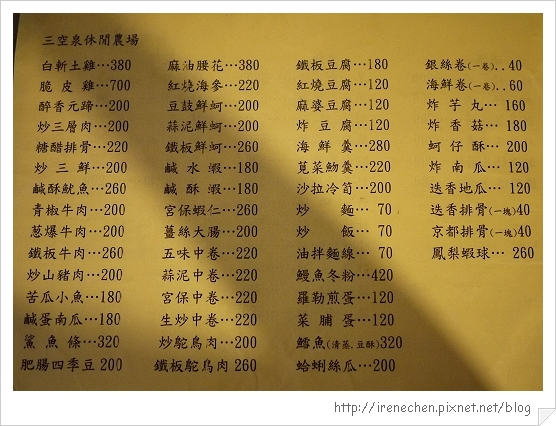 三空泉休閒農場
白斬土雞…380
脆皮雞…700
醉香元蹄…200
炒三層肉…200
糖醋排骨…220
炒三鮮…200
鹹酥魷魚…260
青椒牛肉…200
蔥爆牛肉…200
鐵板牛肉…260
炒山豬肉…200
苦瓜小魚…180
鹹蛋南瓜…180
鯊魚條…320
肥腸四季豆 200
麻油腰花…380
紅燒海參…220
豆鼓鮮蚵…200
蒜泥鮮蚵…200
鐵板鮮蚵…260
鹹水蝦…180
鹹酥蝦…180
宮保蝦仁…260
薑絲大腸…200
五味中卷…220
蒜泥中卷…220
宮保中卷…220
生炒中卷…220
炒鴕鳥肉…200
鐵板鴕鳥肉 260
鐵板豆腐…180
紅燒豆腐…120
麻婆豆腐…120
炸豆腐…120
海鮮羹…280
莧菜魩羹…220
沙拉冷筍…200
炒麵…70
炒飯…70
油拌麵線…70
鰻魚冬粉…420
羅勒煎蛋…120
菜脯蛋…120
鱈魚(清蒸.豆酥)320
蛤蜊絲瓜…200
銀絲卷(一卷)..40
海鮮卷(一卷)..60
炸芋丸… 160
炸香菇… 180
蚵仔酥… 200
炸南瓜… 120
迭香地瓜… 120
迭香排骨(一塊)40
京都排骨(一塊)40
鳳梨蝦球… 260
http://irenechen.pixnet.net/blog